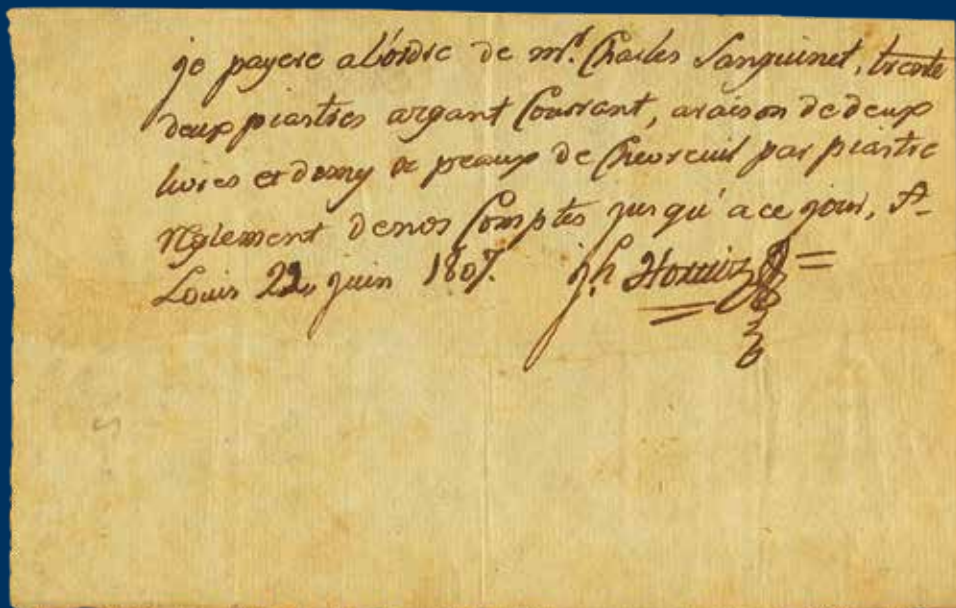 je payere a l'ordre de mr. Charles Sanguinet, trente
deux piastres argant Courrant, a raison de deux
livres et demy de peaux de Chevreuil par piastre
Reglement de nos Comptes jusqu'a ce jour, St-
Louis 22,, juin 1807. jh Hortiz